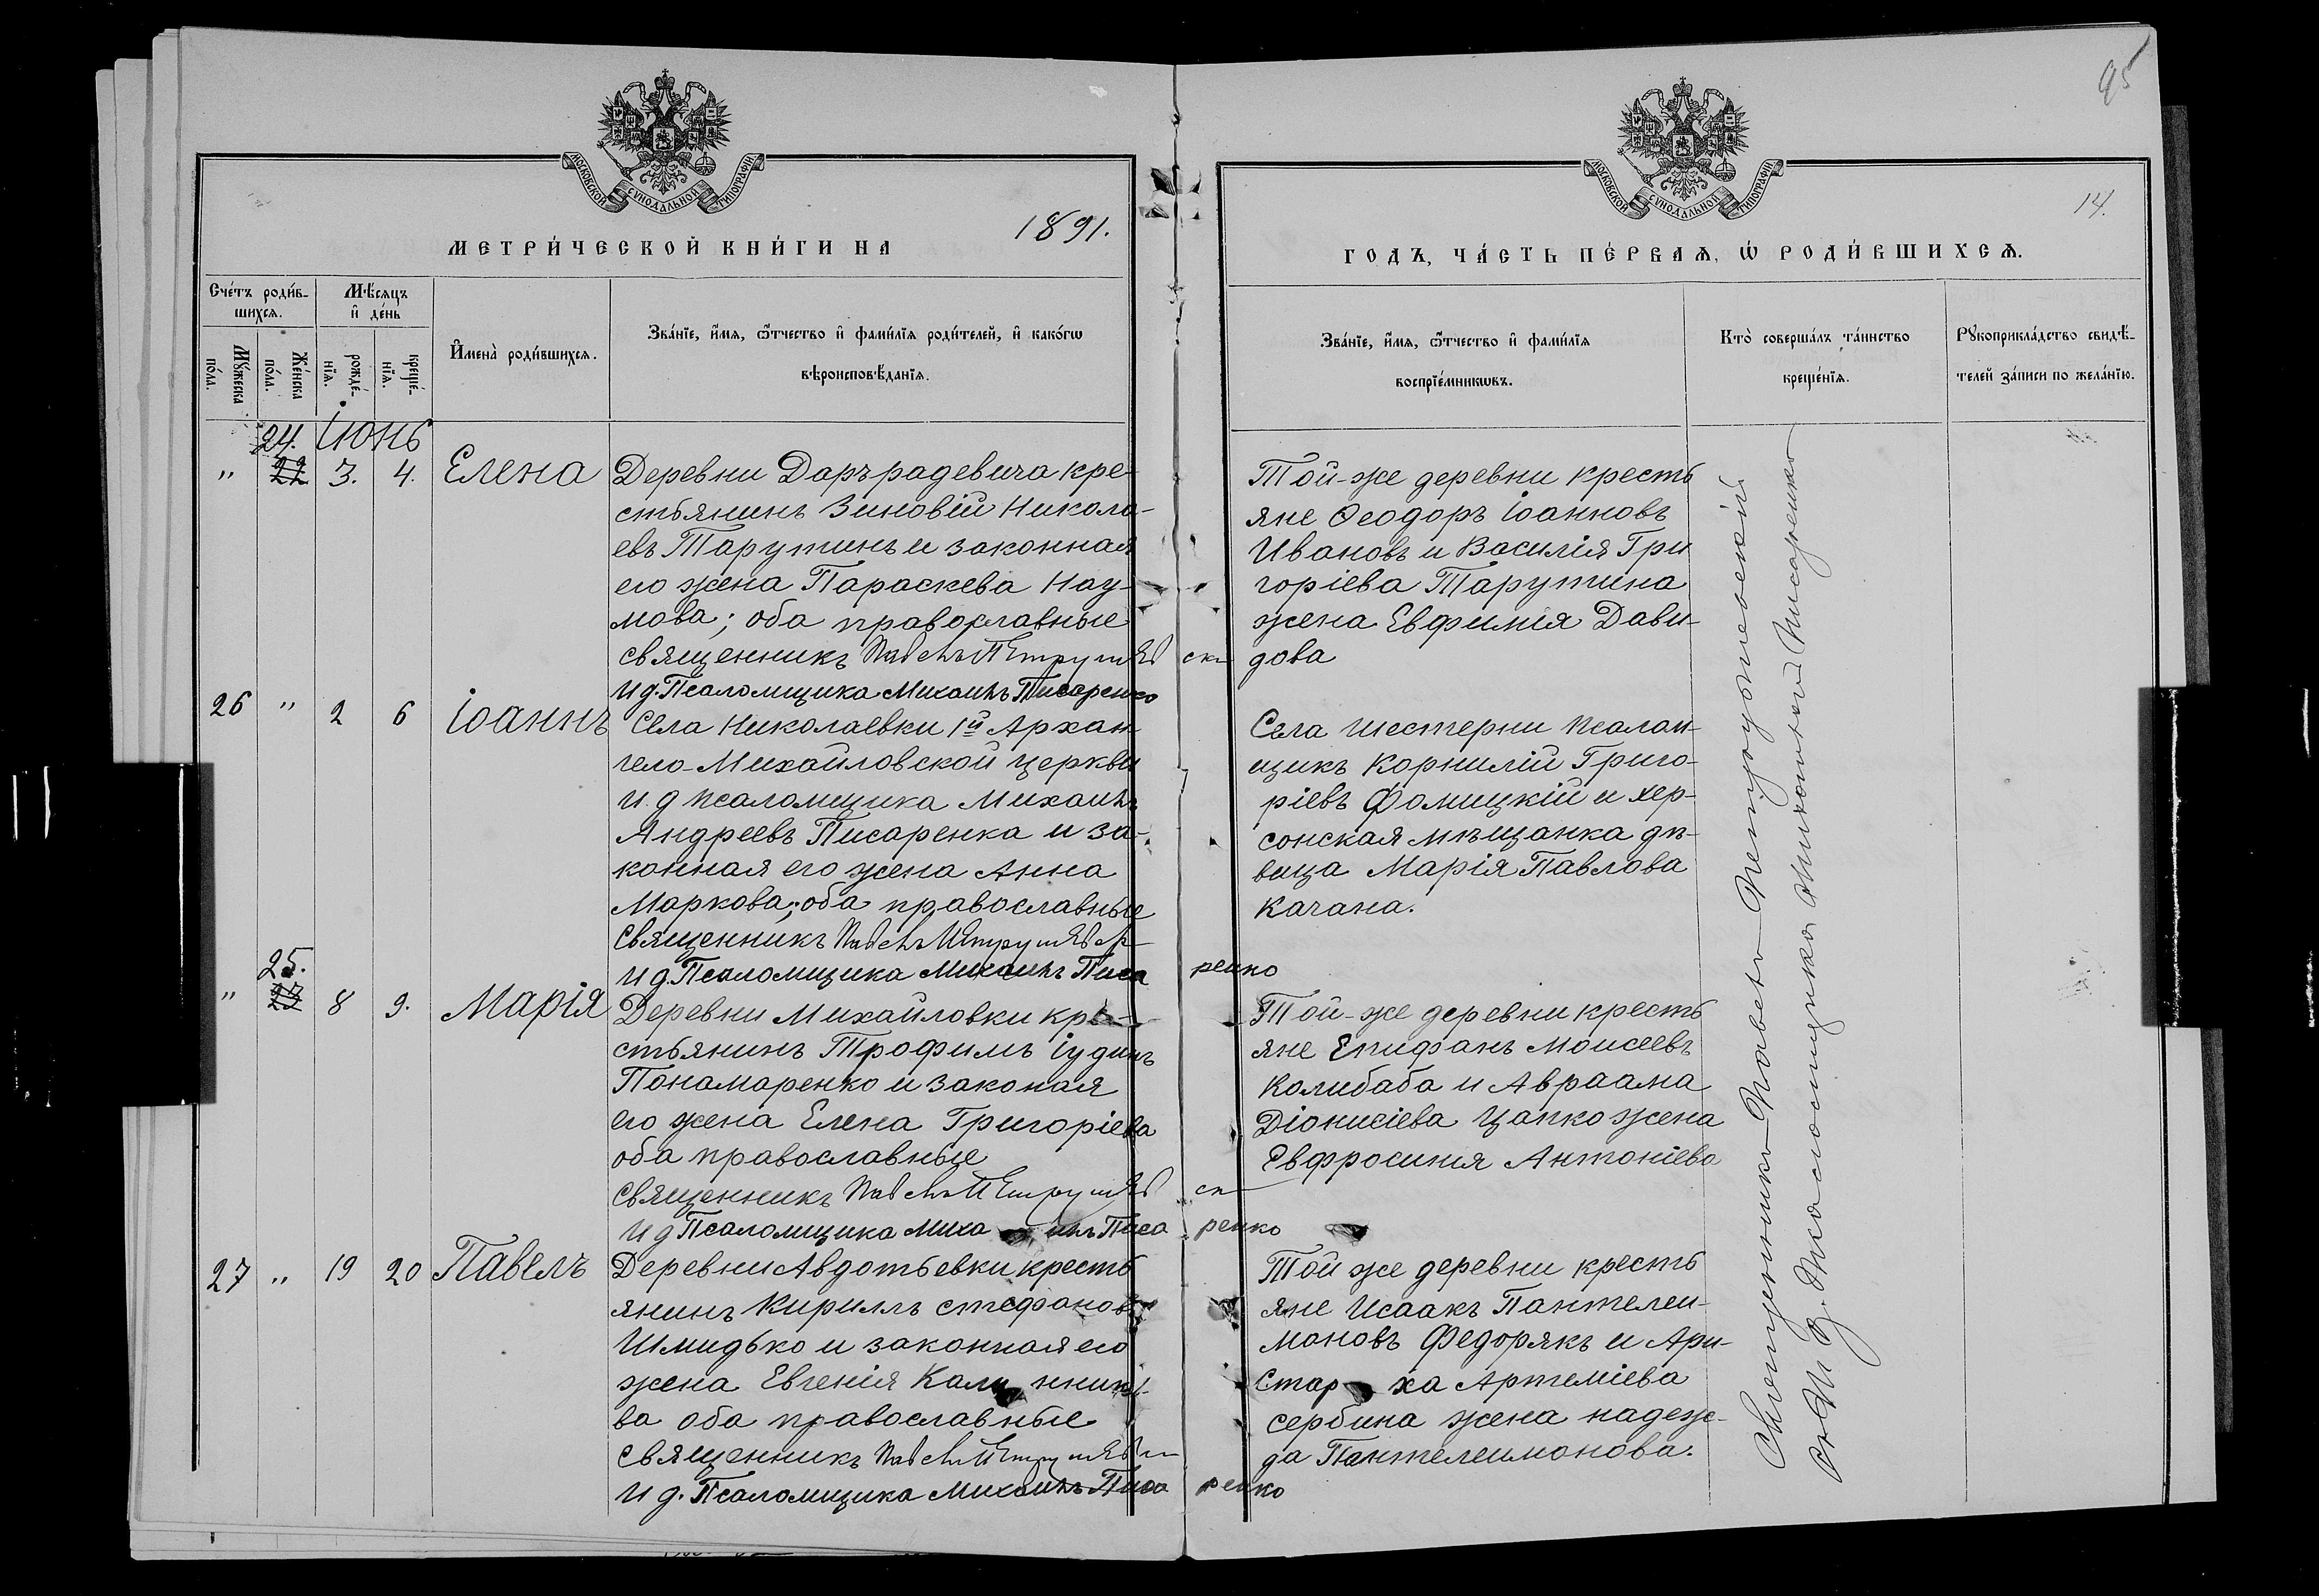 95
МОСКОВСКОЙ СѴНОДАЛЬНОЙ ТИПОГРАФІИ
МОСКОВСКОЙ СѴНОДАЛЬНОЙ ТИПОГРАФІИ
14.
МЕТРИ́ЧЕСКОЙ КНИ́ГИ НА 1891.
ГОДЪ, ЧА́СТЬ ПЕ́РВАѦ, Ѿ РОДИ́ВШИХСѦ.
Сче́тъ роди́в-
шихсѧ.
Мѣ́сѧцъ
и҆ де́нь
Мꙋ́жеска
по́ла.
Же́нска
по́ла.
рожде́-
нїѧ.
креще́-
нїѧ.
И҆мена̀ роди́вшихсѧ.
Зва́нїе, и҆́мѧ, ѻ҆́тчество и҆ фами́лїѧ роди́телей, и҆ како́гѡ
вѣроисповѣ́данїѧ.
Зва́нїе, и҆́мѧ, ѻ҆́тчество и҆ фами́лїѧ
воспрїе́мникѡвъ.
Кто̀ соверша́лъ та́инство
креще́нїѧ.
Рꙋкоприкла́дство свидѣ́-
телей за́писи по жела́нїю.
24. Іюнь
" 22 3. 4. Елена
Деревни Даръ-радевича кре-
стьянинъ Зиновій Никола-
евъ Тарутинъ и законная
его жена Параскева Нау-
мова; оба православные
Священникъ Павелъ Петрушевск
И д. Псаломщика Михаилъ Писаренко
Той-же деревни кресть
яне Ѳеодоръ Іоанновъ
Ивановъ и Василія Гри
горіева Тарутина
жена Евфимія Дави-
дова
26 " 2 6 Іоаннъ
Села Николаевки 1й Архан-
гело-Михайловской церкви
И. д псаломщика Михаилъ
Андреевъ Писаренка и за-
конная его жена Анна
Маркова; оба православные
Священникъ Павелъ Петрушев
И д. Псаломщика Михаилъ Писаренко
Села Шестерни псалом-
щикъ Корнилій Григо-
ріевъ Фомицкій и хер-
сонская мѣщанка дѣ-
вица Марія Павлова
Качана.
25.
" 23 8 9. Марія
Деревни Михайловки кре-
стьянинъ Трофимъ Іудинъ
Понамаренко и законая
его жена Елена Григоріева
оба православные
Священникъ Павелъ Петрушевск
И д Псаломщика Михаилъ Писаренко
Той-же деревни кресть
яне Епифанъ Моисеевъ
Колибаба и Авраама
Діонисіева Цапко жена
Евфросинія Антоніева
27 " 19 20 Павелъ
Деревни Авдотьевки кресть
янинъ Кириллъ Стефановъ
Шмидько и законная его
жена Евгенія Калинников-
ва оба православные
Священникъ Павелъ Петрушев
И д. Псаломщика Михаилъ Писаренко
Той же деревни кресть
яне Исаакъ Пантелеи-
моновъ Федорякъ и Ари-
старха Артеміева
Сербина жена Надеж-
да Пантелеимонова.
Священникъ Павелъ Петрушевскій
съ И д. Псаломщика Михаилъ Писаренко